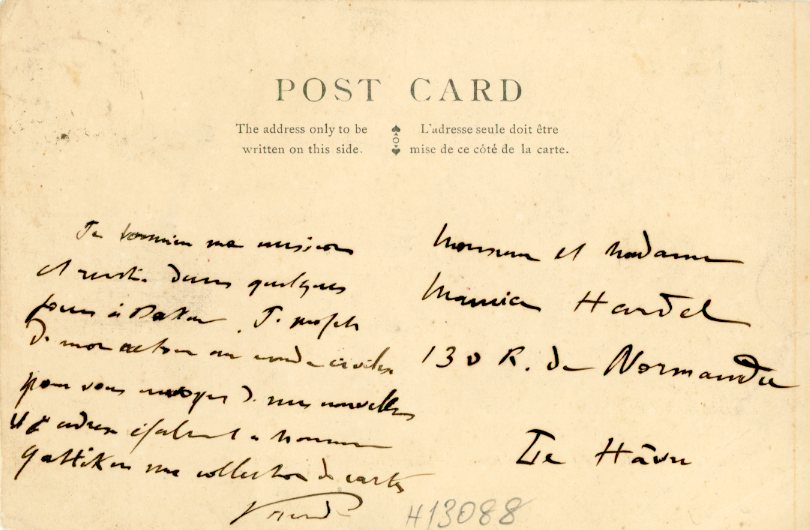 POST CARD
The address only to be
written on this side.
L'adresse seule doit être
mise de ce côté de la carte.
Je termine ma mission
et rentre dans quelques
jours à Dakar. Je profite
de mon retour au monde civilisé
pour vous envoyer de mes nouvelles
et adresse également à Monsieur
une collection de cartes
Monsieur et Madame
Maurice Hardel
130 R. de Normandie
Le Hâvre
H13088